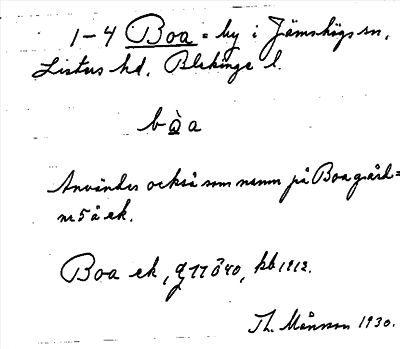 1-4 Boa = by i Jämshögs sn,
Listers hd, Blekinge l.
bòa
Användes också som namn på Boa gård =
nr 5 å ek.
Boa ek, g 77 Ö 40, kb 1912.
Th. Månsson 1930.